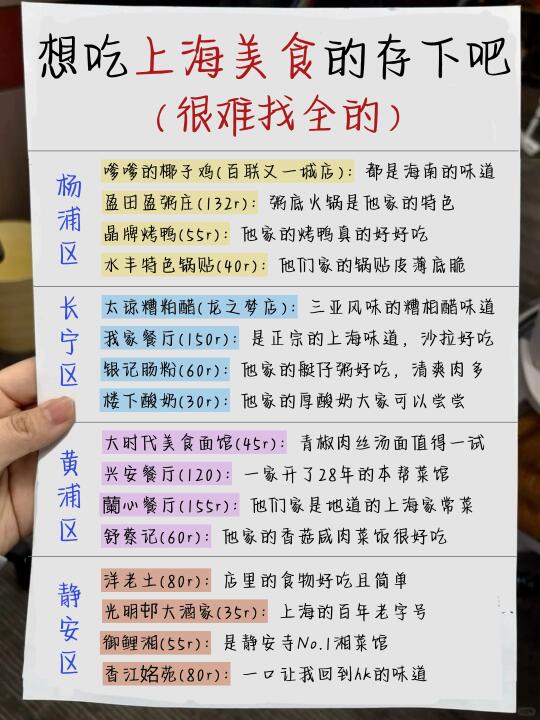 想吃上海美食的存下吧
(很难找全的)
杨浦区
嗲嗲的椰子鸡(百联又一城店): 都是海南的味道
盈田盈粥庄(132r): 粥底火锅是他家的特色
晶牌烤鸭(55r): 他家的烤鸭真的好好吃
水丰特色锅贴(40r): 他们家的锅贴皮薄底脆
长宁区
太谅糟粕醋(龙之梦店): 三亚风味的糟粕醋味道
我家餐厅(150r): 是正宗的上海味道, 沙拉好吃
银记肠粉(60r): 他家的艇仔粥好吃, 清爽肉多
楼下酸奶(30r): 他家的厚酸奶大家可以尝尝
黄浦区
大时代美食面馆(45r): 青椒肉丝汤面值得一试
兴安餐厅(120): 一家开了28年的本帮菜馆
蘭心餐厅(155r): 他们家是地道的上海家常菜
舒蔡记(60r): 他家的香菇咸肉菜饭很好吃
静安区
洋老土(80r): 店里的食物好吃且简单
光明邨大酒家(35r): 上海的百年老字号
御鲤湘(55r): 是静安寺No.1湘菜馆
香江茗苑(80r): 一口让我回到hk的味道